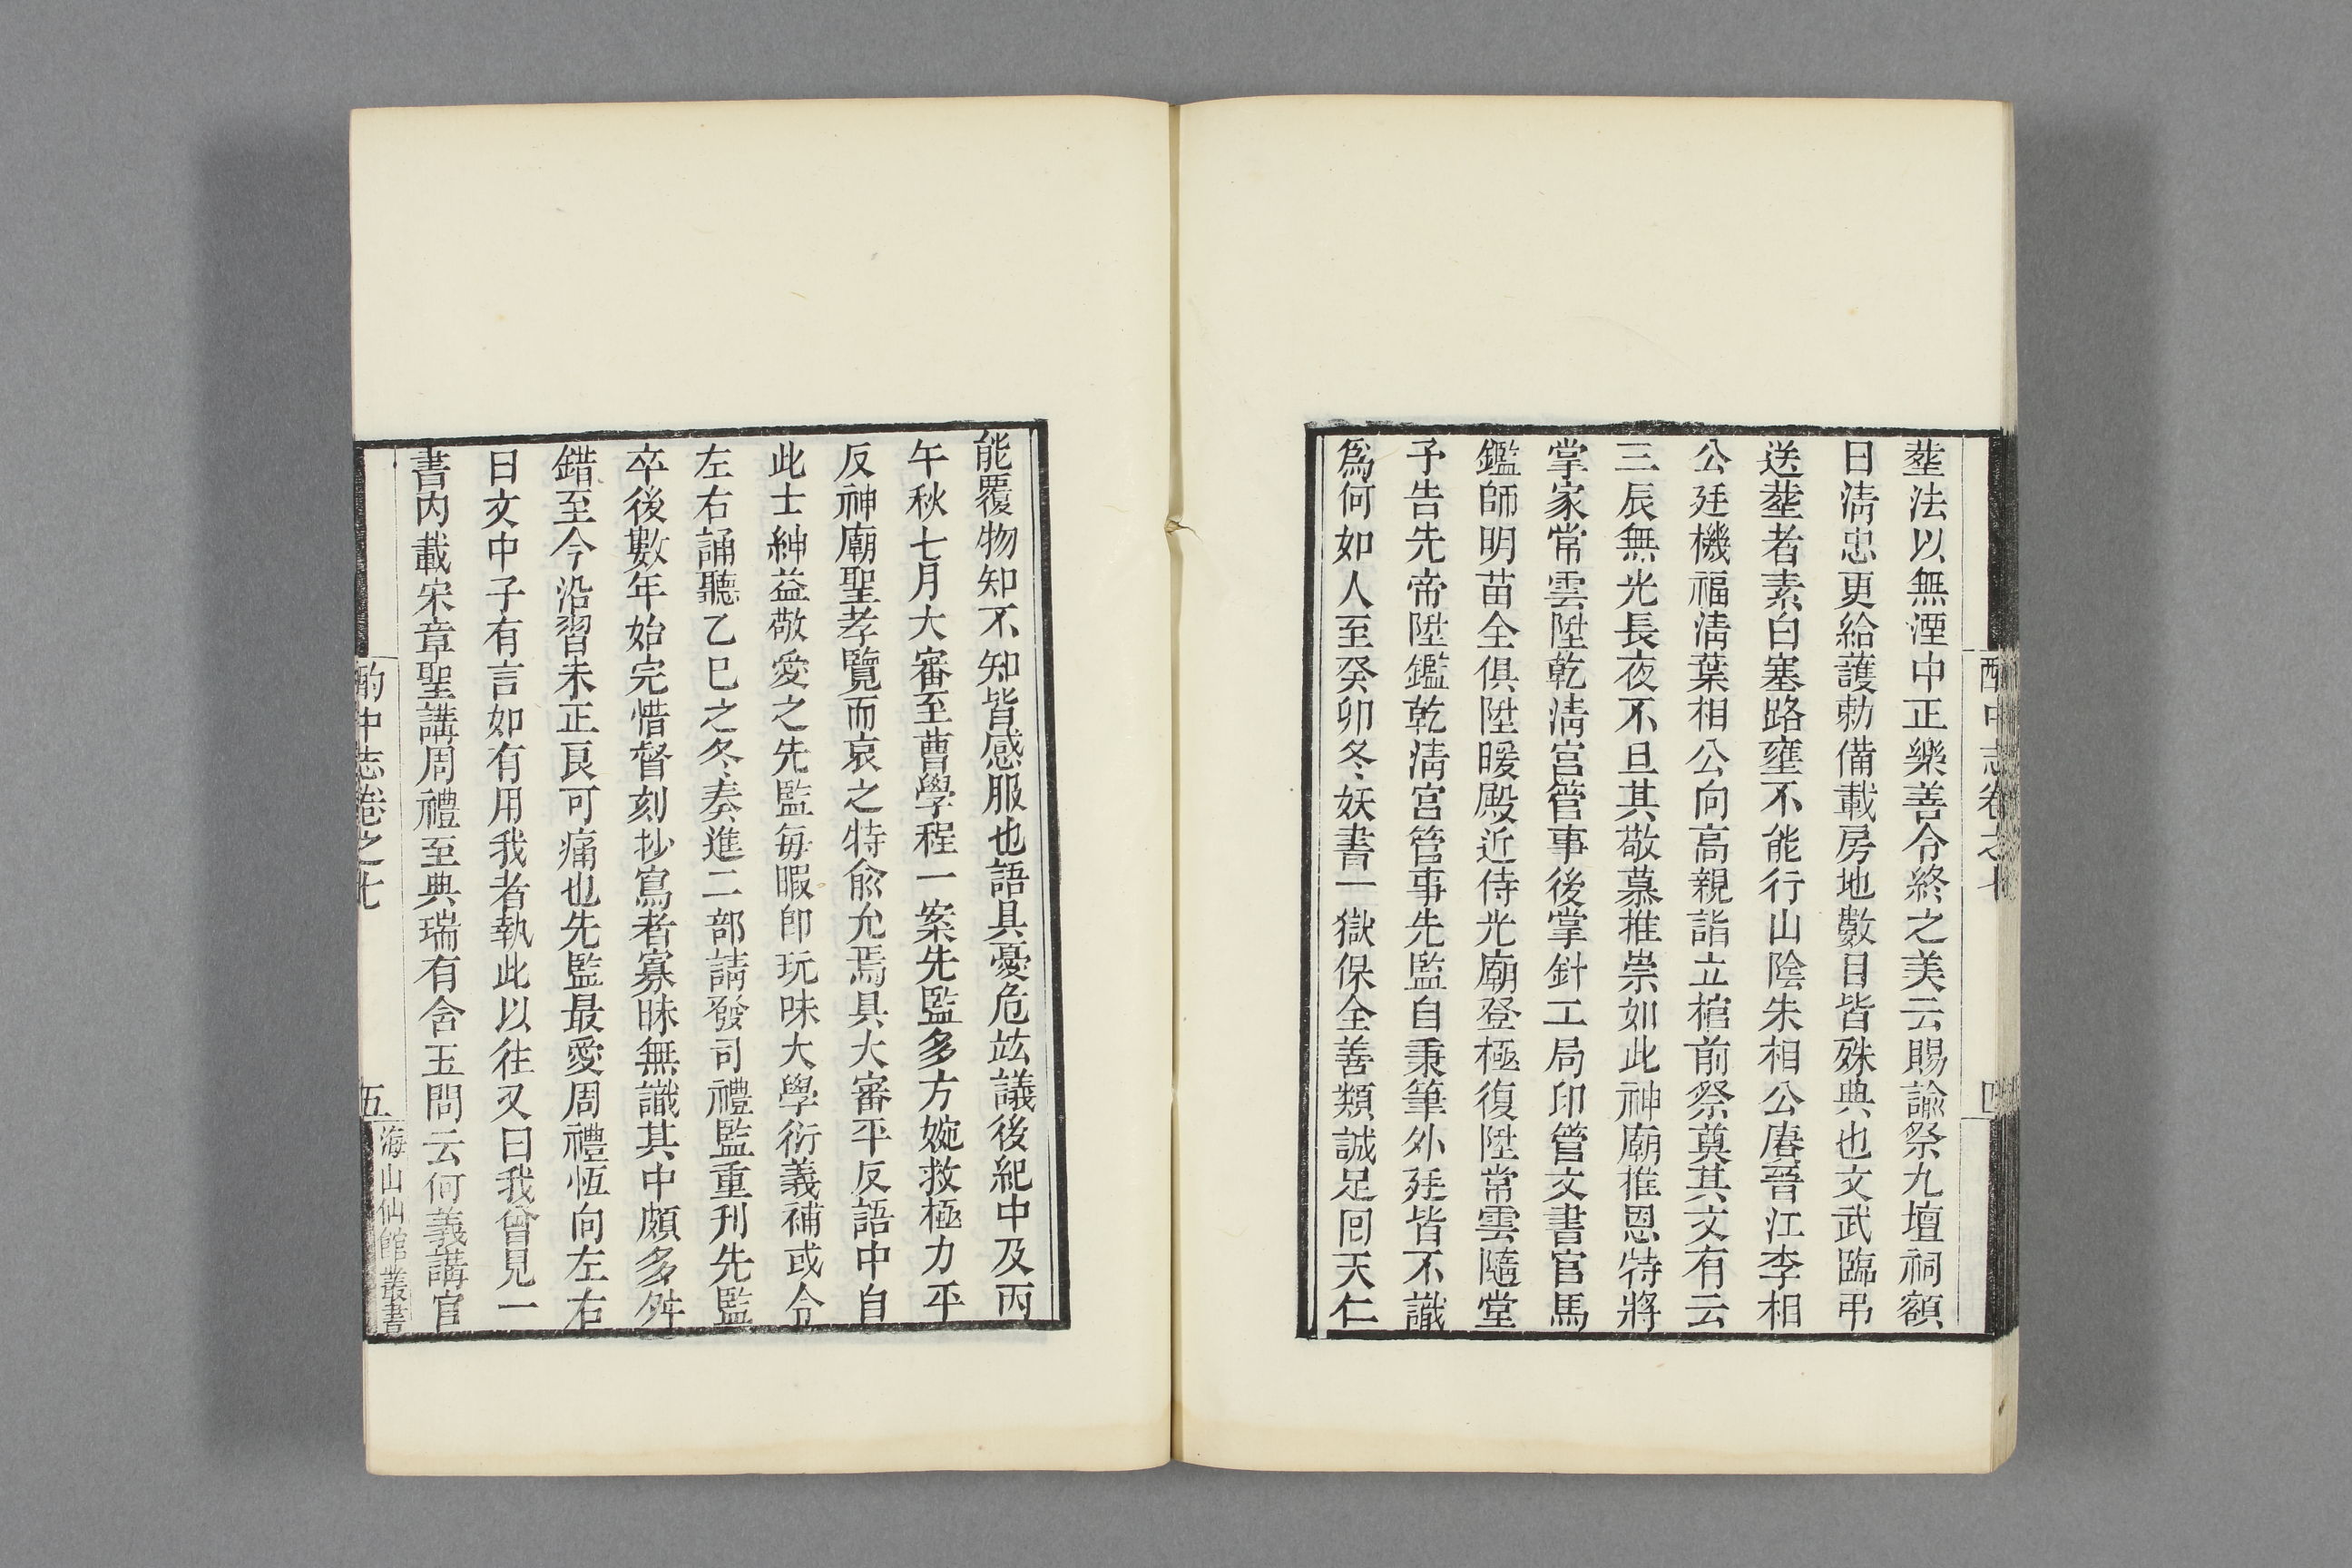 酌中志卷之七
四
塟法以無湮中正樂善令終之美云賜諭祭九壇祠額
曰淸忠更給護勅備載房地數目皆殊典也文武臨弔
送塟者素白塞路壅不能行山陰朱相公賡晉江李相
公廷機福淸葉相公向高親詣立棺前祭奠其文有云
三辰無光長夜不旦其敬慕推崇如此神廟推恩特將
掌家常雲陞乾淸宮管事後掌針工局印管文書官馬
鑑師明苗全俱陞暖殿近侍光廟登極復陞常雲隨堂
予告先帝陞鑑乾淸宮管事先監自秉筆外廷皆不識
爲何如人至癸卯冬妖書一獄保全善類誠足囘天仁
能覆物知不知皆感服也語具憂危竑議後紀中及丙
午秋七月大審至曹學程一案先監多方婉救極力平
反神廟聖孝覽而哀之特兪允焉具大審平反語中自
此士紳益敬愛之先監每暇卽玩味大學衍義補或令
左右誦聽乙巳之冬奏進二部請發司禮監重刊先監
卒後數年始完惜督刻抄寫者寡昧無識其中頗多舛
錯至今沿習未正良可痛也先監最愛周禮恆向左右
曰文中子有言如有用我者執此以往又曰我曾見一
書内載宋章聖講周禮至典瑞有含玉問云何義講官
酌中志卷之七
五
海山仙館叢書